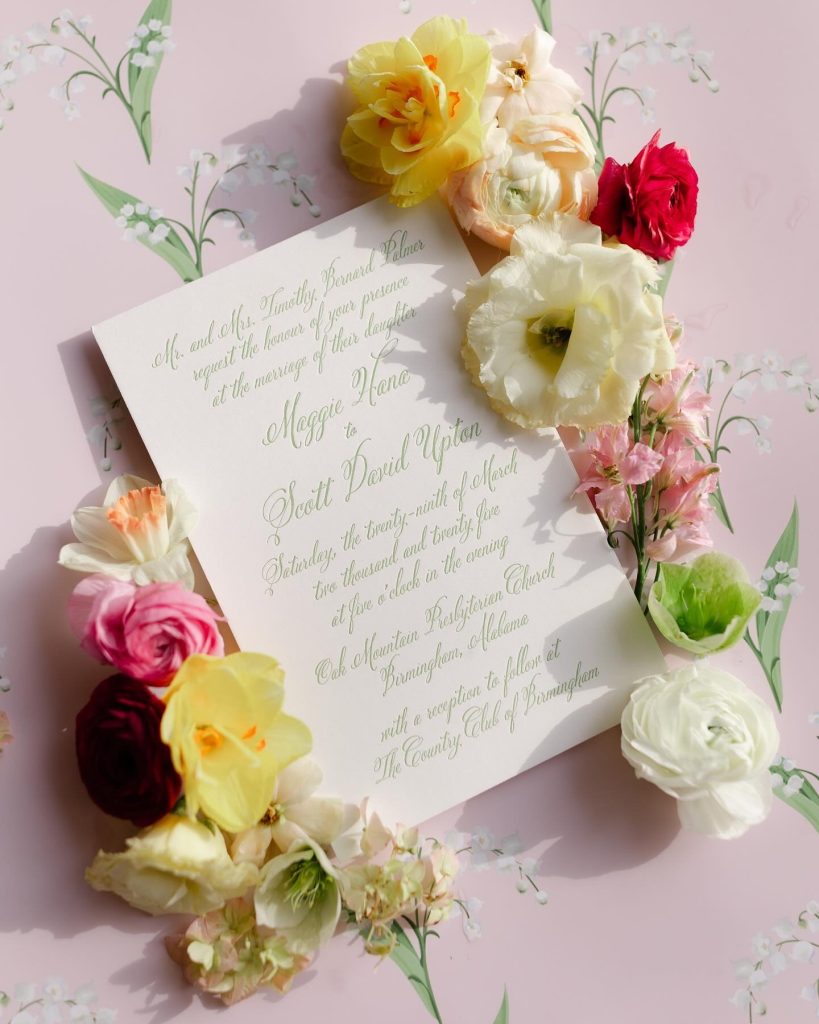 Mr. and Mrs. Timothy Bernard Palmer
request the honour of your presence
at the marriage of their daughter
Maggie Hana
to
Scott David Upton
Saturday, the twenty-ninth of March
two thousand and twenty five
at five o'clock in the evening
Oak Mountain Presbyterian Church
Birmingham, Alabama
with a reception to follow at
The Country Club of Birmingham